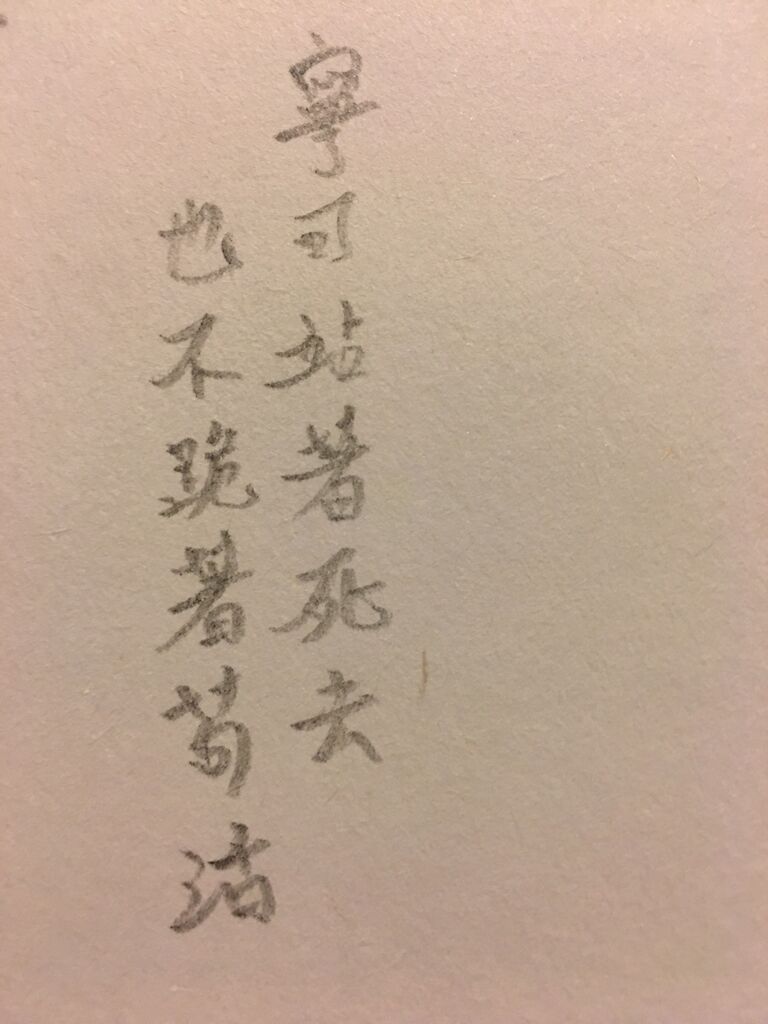 寧可站著死去
也不跪著苟活